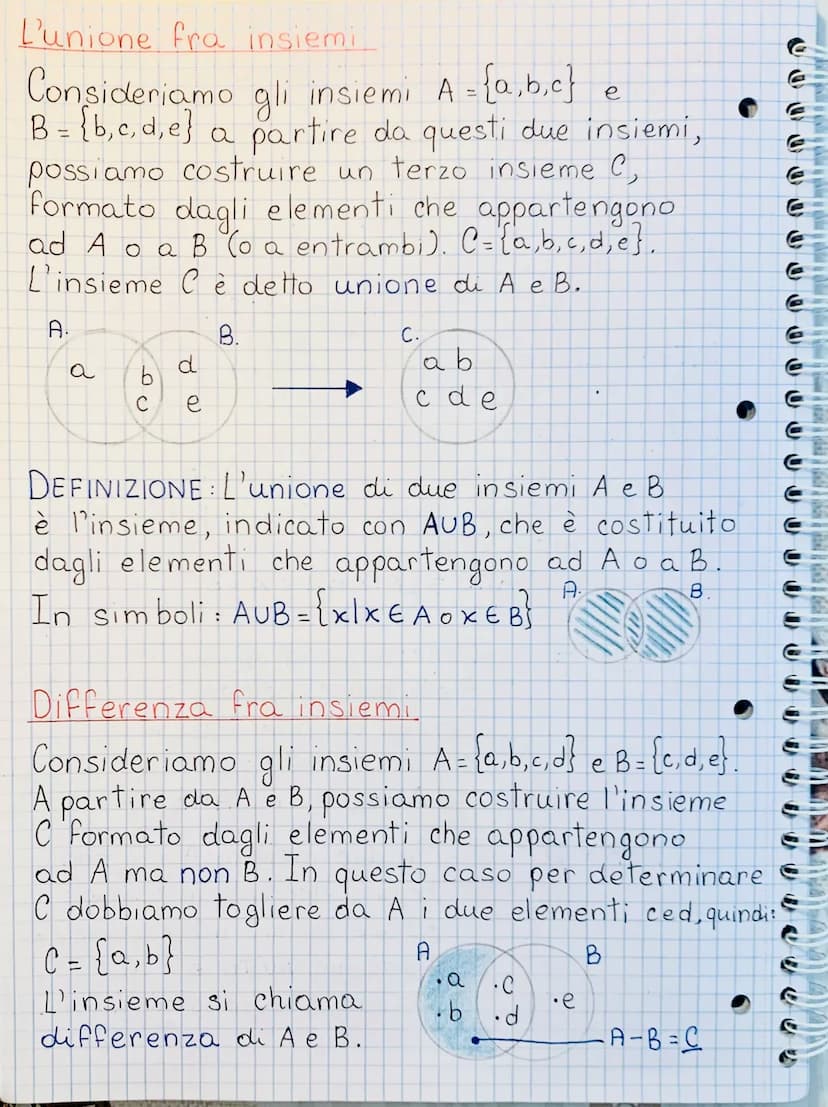 L'unione fra insiemi
Consideriamo gli insiemi A = {a,b,c} e
B = {b,c,d,e} a partire da questi due insiemi,
possiamo costruire un terzo insieme C,
formato dagli elementi che appartengono
ad A o a B (o a entrambi). C={a,b,c,d,e}.
L'insieme C è detto unione di A e B.
A. B. C.
a b d a b
c e c d e
DEFINIZIONE: L'unione di due insiemi A e B
è l'insieme, indicato con A∪B, che è costituito
dagli elementi che appartengono ad A o a B.
In simboli: A∪B={x|x∈A o x∈B} A. B.
Differenza fra insiemi
Consideriamo gli insiemi A={a,b,c,d} e B={c,d,e}.
A partire da A e B, possiamo costruire l'insieme
C formato dagli elementi che appartengono
ad A ma non B. In questo caso per determinare
C dobbiamo togliere da A i due elementi c e d, quindi:
C = {a,b}
L'insieme si chiama
differenza di A e B.
A B
·a ·c ·e
·b ·d
A-B=C